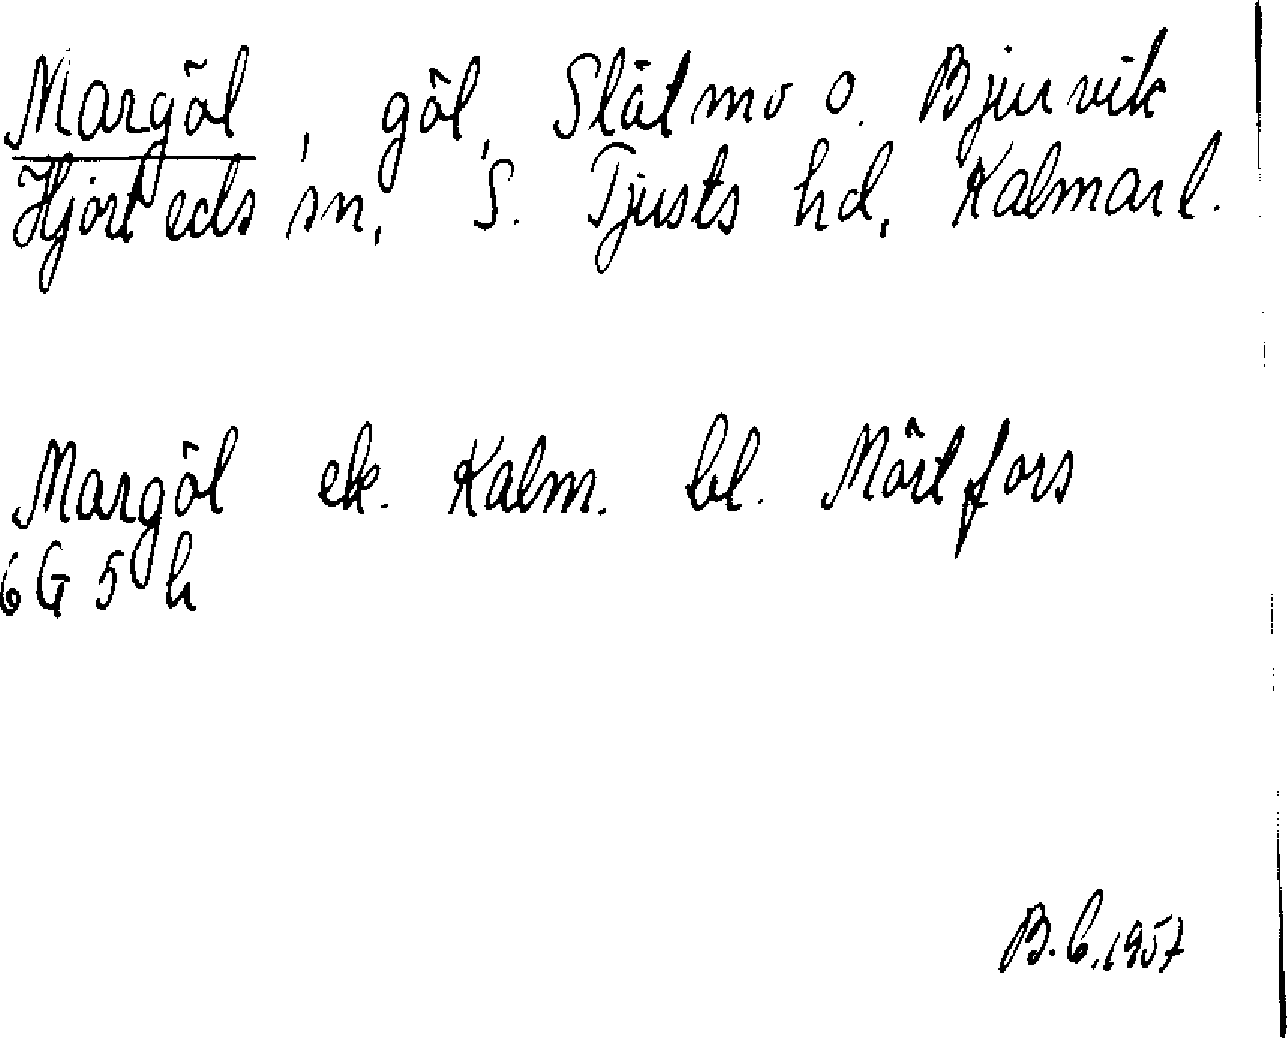 Margöl, göl, Slätmo o. Bjurvik
Hjorteds sn, S. Tjusts hd, Kalmar l.
Margöl ek. Kalm. bl. Mörtfors
6G 5h
B.C. 1957